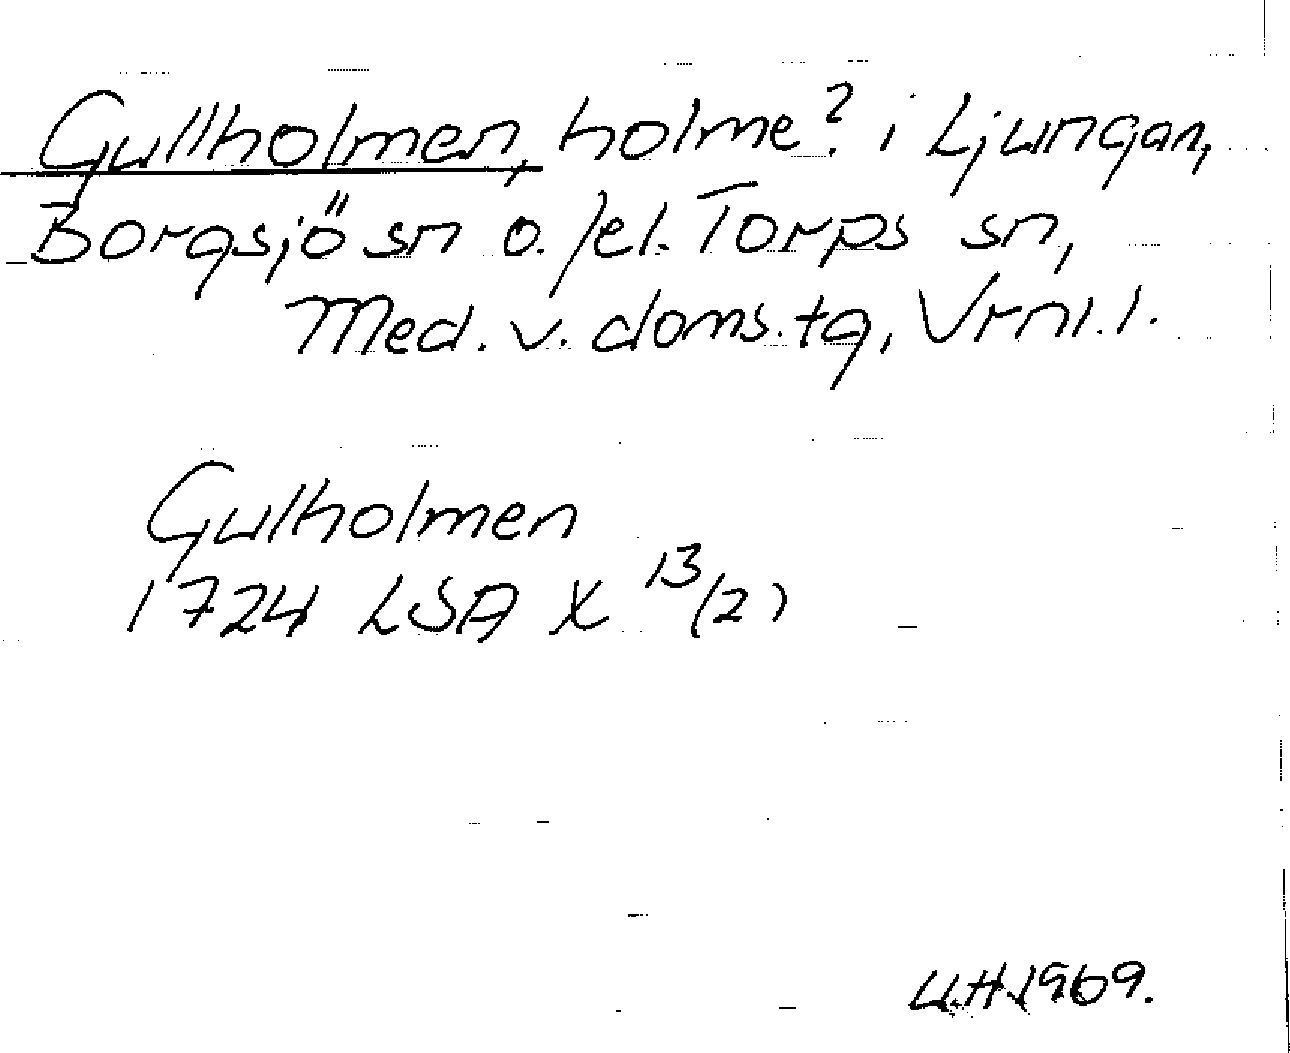 Gullholmen, holme? i Ljungan,
Borgsjö sn o./el. Torps sn,
Med. v. doms.tg, Vrnl.l.
Gulholmen
1724 LSA X 13/(2)
U.H.1969.